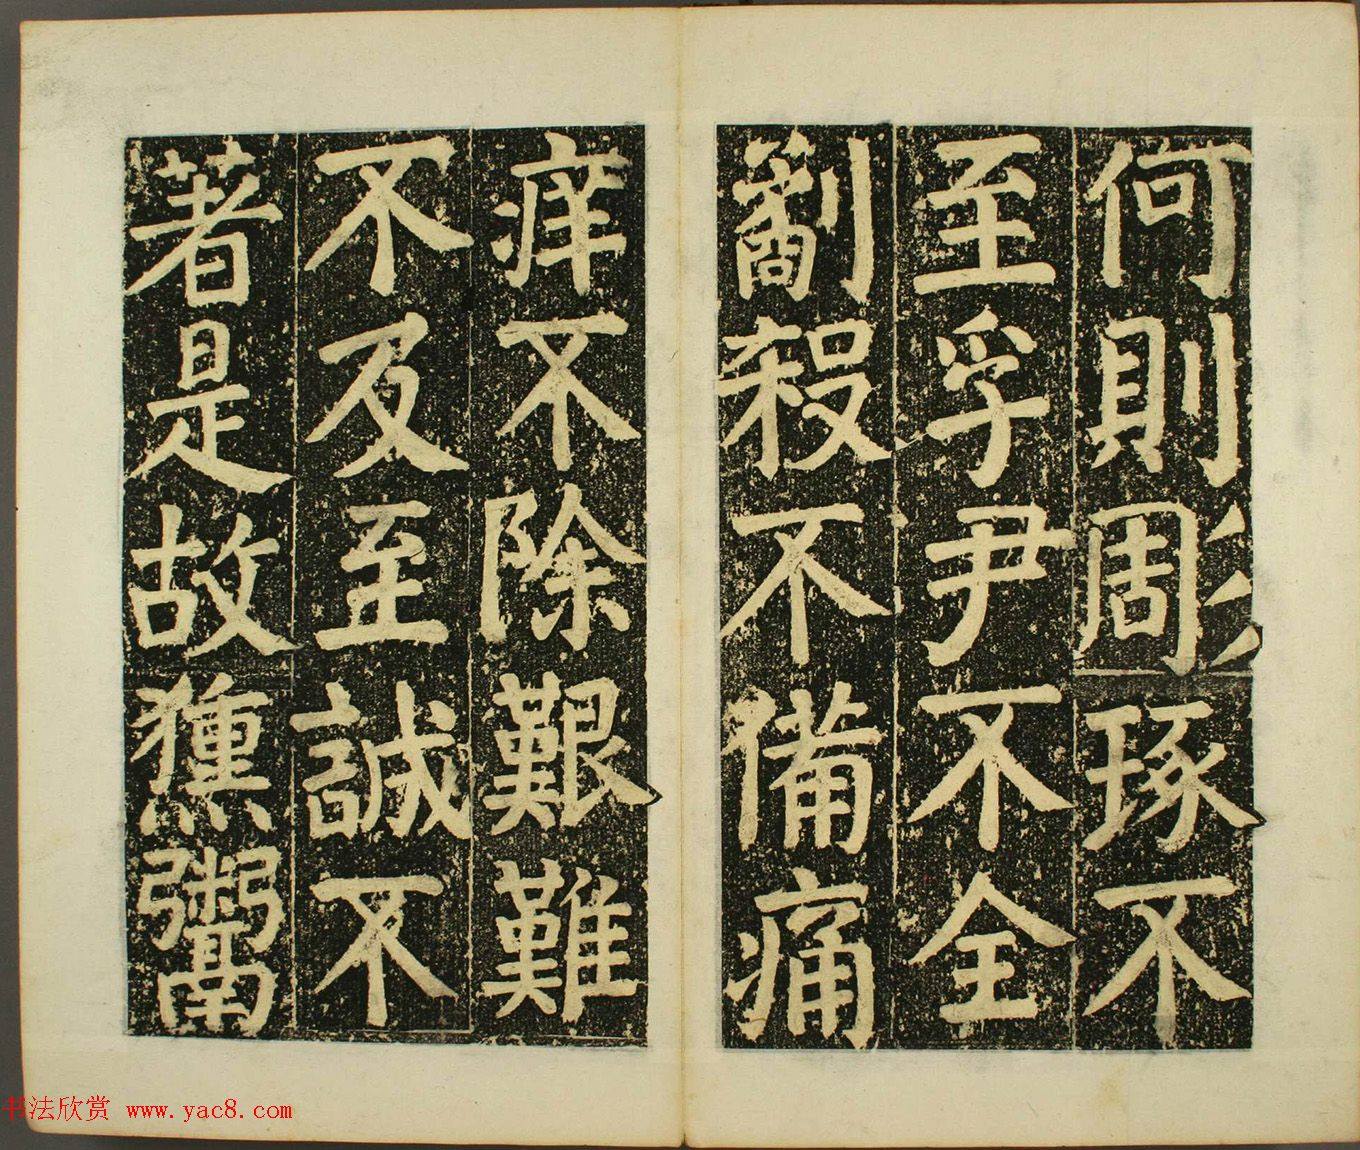 何則彫琢不
至孚尹不全
劗殺不備痛
痒不除艱難
不及至誠不
著是故獯鬻
书法欣赏 www.yac8.com